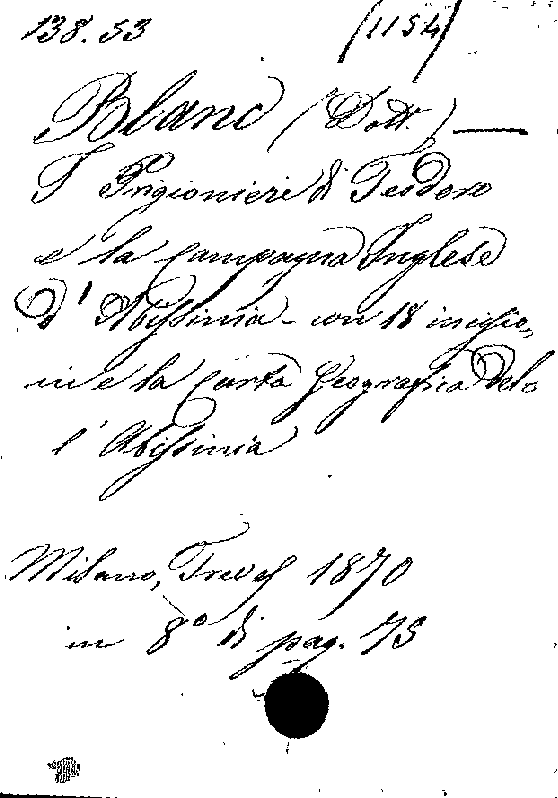 138.53 (1154)
Blanc (Dott.) —
I Prigionieri di Teodoro
e la campagna Inglese
d'Abissinia - con 18 incisio-
ni e la carta geografica del-
l'Abissinia
Milano, Treves 1870
in 8° di pag. 75